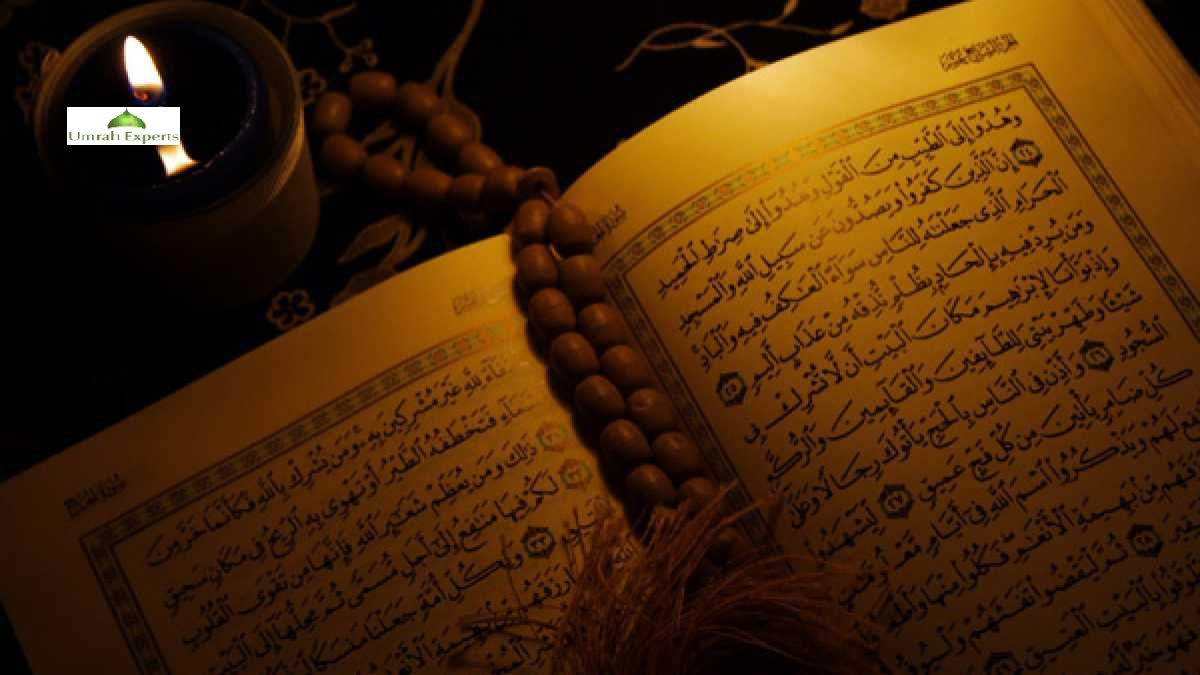 Umrah Experts
الجزء السابع عشر
وَهُدُوٓا إِلَى ٱلطَّيِّبِ مِنَ ٱلْقَوْلِ وَهُدُوٓا إِلَىٰ صِرَٰطِ ٱلْحَمِيدِ
٢٤ إِنَّ ٱلَّذِينَ كَفَرُوا وَيَصُدُّونَ عَن سَبِيلِ ٱللَّهِ وَٱلْمَسْجِدِ
ٱلْحَرَامِ ٱلَّذِى جَعَلْنَٰهُ لِلنَّاسِ سَوَآءً ٱلْعَٰكِفُ فِيهِ وَٱلْبَادِ
وَمَن يُرِدْ فِيهِ بِإِلْحَادٍ بِظُلْمٍ نُّذِقْهُ مِنْ عَذَابٍ أَلِيمٍ ٢٥
وَإِذْ بَوَّأْنَا لِإِبْرَٰهِيمَ مَكَانَ ٱلْبَيْتِ أَن لَّا تُشْرِكْ بِى
شَيْـًٔا وَطَهِّرْ بَيْتِىَ لِلطَّآئِفِينَ وَٱلْقَآئِمِينَ وَٱلرُّكَّعِ
ٱلسُّجُودِ ٢٦ وَأَذِّن فِى ٱلنَّاسِ بِٱلْحَجِّ يَأْتُوكَ رِجَالًا وَعَلَىٰ
كُلِّ ضَامِرٍ يَأْتِينَ مِن كُلِّ فَجٍّ عَمِيقٍ ٢٧ لِّيَشْهَدُوا
لَهُمْ وَيَذْكُرُوا ٱسْمَ ٱللَّهِ فِىٓ أَيَّامٍ
مِّن بَهِيمَةِ ٱلْأَنْعَٰمِ فَكُلُوا مِنْهَا
٢٨ ثُمَّ لْيَقْضُوا تَفَثَهُمْ
بِٱلْبَيْتِ ٱلْعَتِيقِ ٢٩
سورة الحج
لِلَّهِ غَيْرَ مُشْرِكِينَ بِهِ وَمَن يُشْرِكْ بِٱللَّهِ فَكَأَنَّمَا خَرَّ مِنَ
فَتَخْطَفُهُ ٱلطَّيْرُ أَوْ تَهْوِى بِهِ ٱلرِّيحُ فِى مَكَانٍ سَحِيقٍ
ذَٰلِكَ وَمَن يُعَظِّمْ شَعَٰٓئِرَ ٱللَّهِ فَإِنَّهَا مِن تَقْوَى ٱلْقُلُوبِ
لَكُمْ فِيهَا مَنَٰفِعُ إِلَىٰٓ أَجَلٍ مُّسَمًّى ثُمَّ مَحِلُّهَآ إِلَى ٱلْبَيْتِ
٣٣ وَلِكُلِّ أُمَّةٍ جَعَلْنَا مَنسَكًا